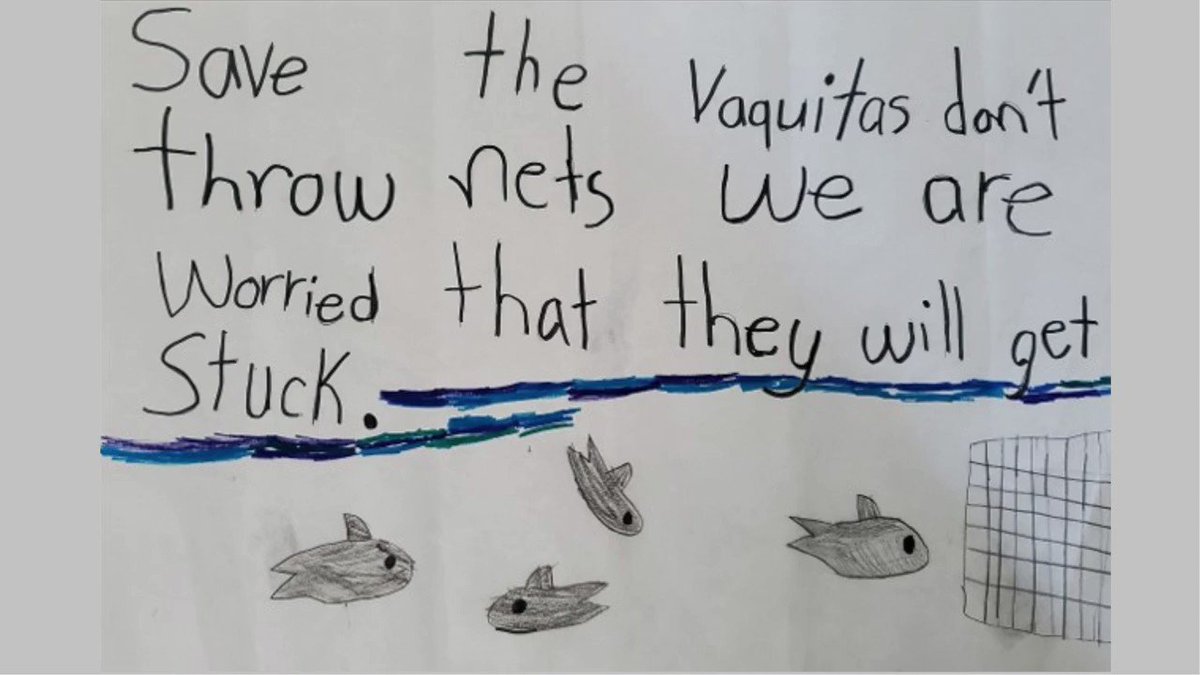 Save the Vaquitas don't
throw nets we are
Worried that they will get
Stuck.